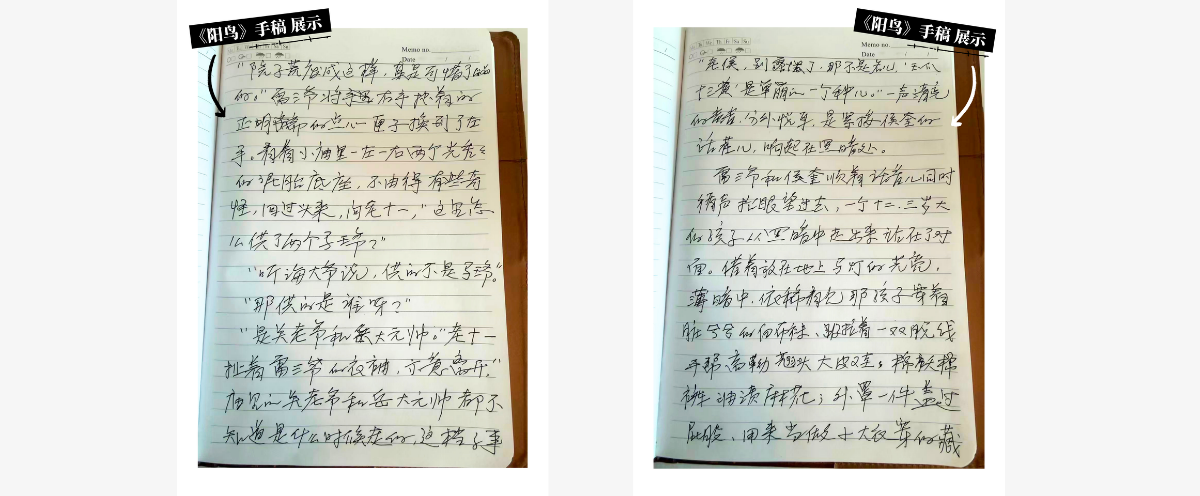 《阳鸟》手稿 展示
Memo no.
Date
"院子荒在成这样，真是可惜了的
的。"雷三爷将手里右手拎着的
正明斋的点心匣子换到了左
手。看着小庙里一左一右两个光秃秃
的泥胎底座，不由得有些奇
怪，回过头来，问老十一，"这里怎
么供了两个子
"听海大爷说，供的不是
"那供的是谁呀？"
"是关老爷和岳大元帅。"老十一
扯着雷三爷的衣袖，示意离开，"
庙里的关老爷和岳大元帅都不
知道是什么时候走的，这档子事
《阳鸟》手稿 展示
Memo no.
Date
别
十三黄'是单崩儿一个种儿。"一声清亮
的童音，分外悦耳，是紧接侯奎的
话茬儿，响起在黑暗处。
雷三爷和侯奎顺着话音儿同时
循声抬眼望过去，一个十二、三岁大
的孩子从黑暗中走出来站在了对
面。借着放在地上马灯的光亮，
薄暗中，依稀看见那孩子穿着
脏兮兮的旧布袜、趿拉着一双脱线
开帮高勒翘头大皮靰，棉袄棉
裤油渍麻花；外罩一件盖过
屁股、用来当做大衣穿的藏